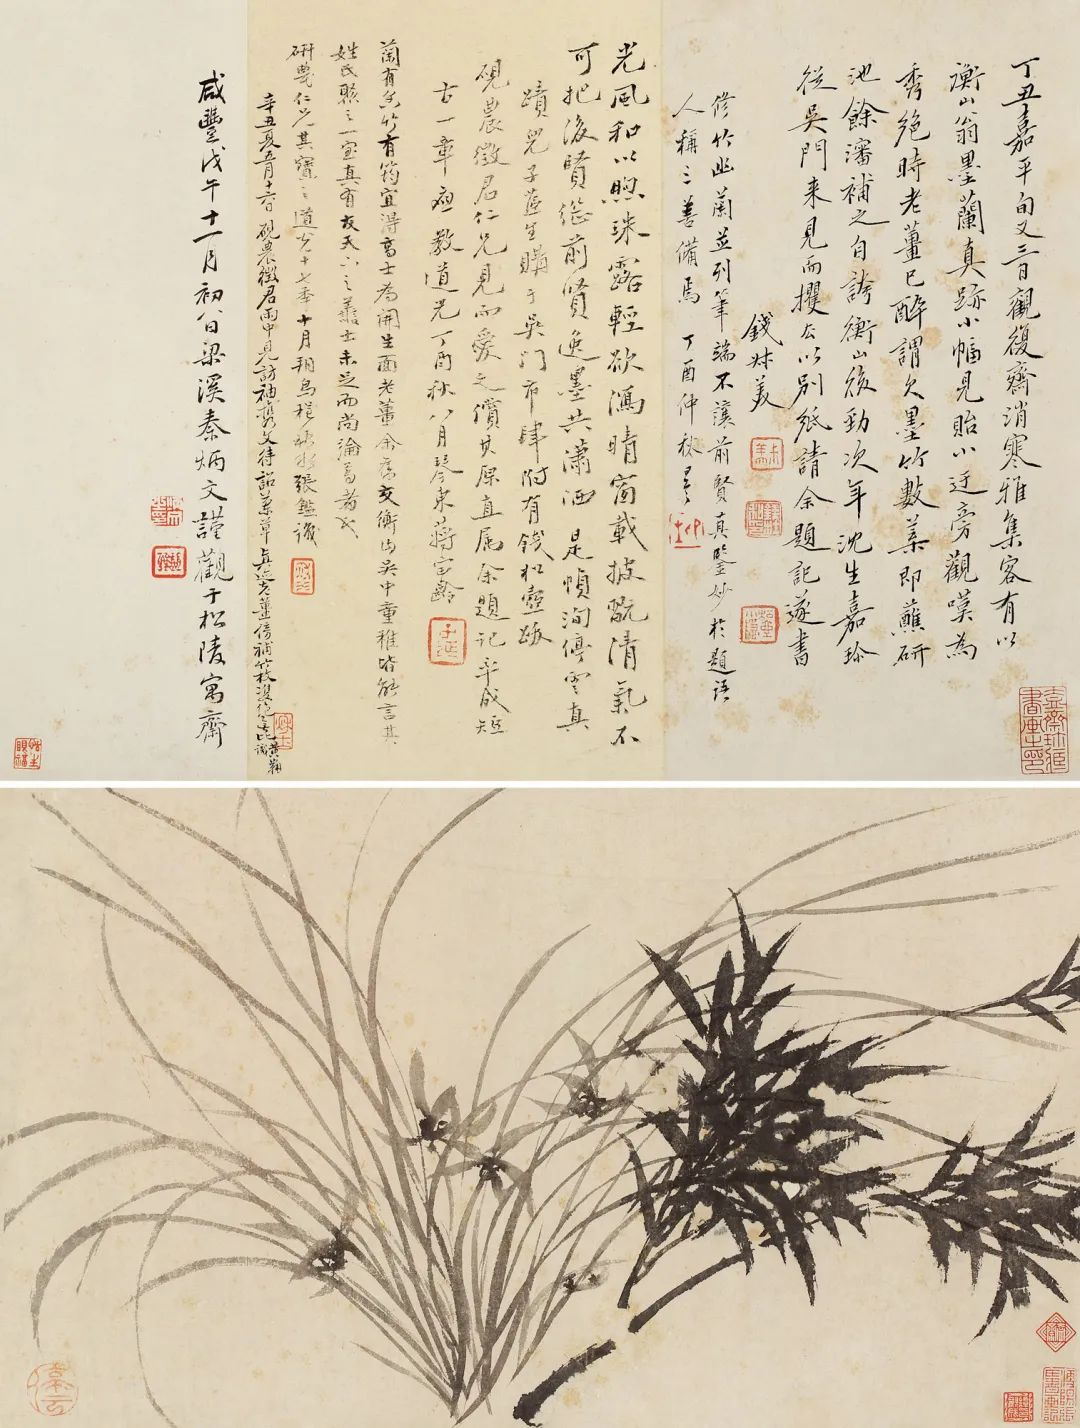 丁丑嘉平旬又三日觀復齋消寒雅集客有以
衡山翁墨蘭真跡小幅見貽小迂旁觀嘆為
秀絕時老薑已醉謂欠墨竹數葉即蘸研
池餘瀋補之自誇衡山後勁次年沈生嘉珍
從吳門來見而攫去以別紙請余題記遂書
錢叔美
修竹幽蘭並列筆端不讓前賢真鑒妙於題語
人稱三善備焉 丁酉仲秋
光風和以煦珠露輕欲滴晴窗載披翫清氣不
可把後賢繼前賢逸墨共瀟洒 是幀洵停雲真
蹟兒子薝生購于吳門市肆附有錢松壺跋
硯農徵君仁兄見而愛之償其原直屬余題記率成短
古一章應教道光丁酉秋八月琴東蔣寶齡
蘭有香竹有筠宜得高士為開生面老薑余舊交衡山吳中童稚皆能言其
姓氏聚之一室真有友天下之善士未足而尚論
研農仁兄其寶之道光十七年十月
張鑑識
辛丑夏五月十六日硯農徵君雨中見訪袖携文待詔蘭草真迹老薑傍補竹枝
黃鞠識
咸豐戊午十一月初八日梁溪秦炳文謹觀于松陵寓齋